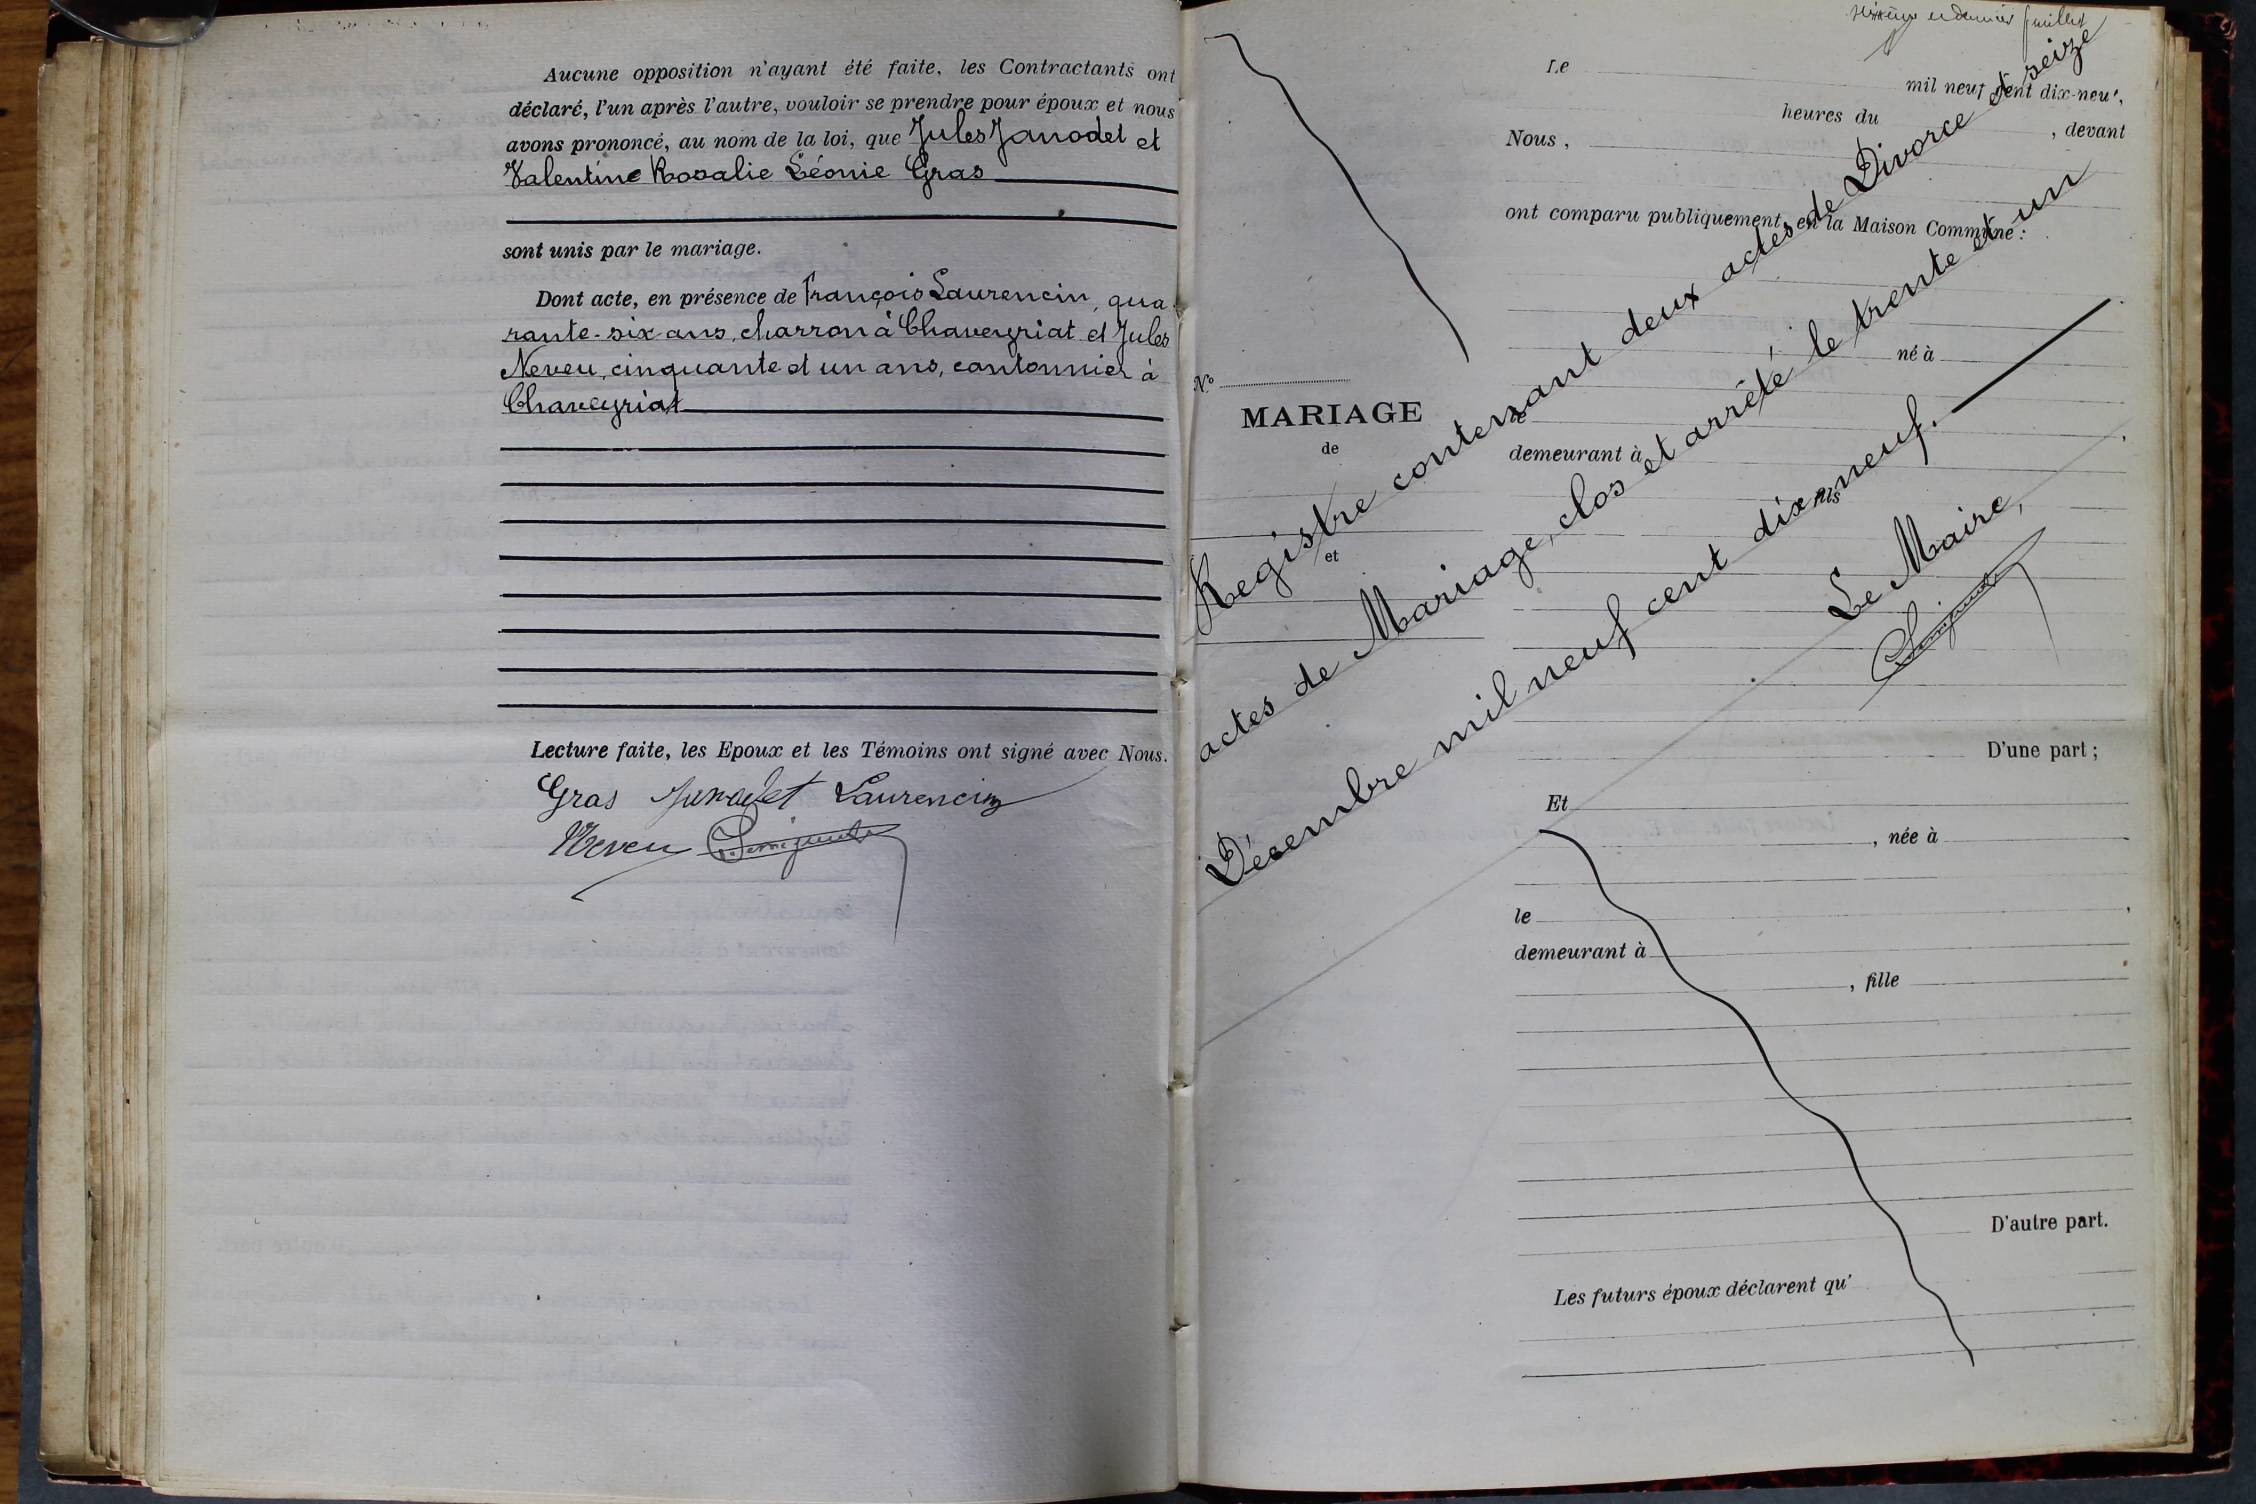 Aucune opposition n'ayant été faite, les Contractants ont
déclaré, l'un après l'autre, vouloir se prendre pour époux et nous
avons prononcé, au nom de la loi, que Jules Janodet et
Valentine Rosalie Léonie Gras
sont unis par le mariage.
Dont acte, en présence de François Laurencin, qua
rante-six ans, charron à Chaveyriat et Jules
Neveu, cinquante et un ans, cantonnier à
Chaveyriat
Lecture faite, les Epoux et les Témoins ont signé avec Nous.
Gras Janodet Laurencin
Neveu
et dernier feuillet
Le
mil neuf cent dix-neuf,
heures du
, devant
Nous,
ont comparu publiquement en la Maison Commune :
né à
N°
MARIAGE
de
et
le
demeurant à
fils
Registre contenant deux actes de Divorce et seize
actes de Mariage, clos et arrêté le trente et un
Décembre mil neuf cent dix-neuf.
Le Maire,
D'une part ;
Et
, née à
le
demeurant à
, fille
D'autre part.
Les futurs époux déclarent qu'